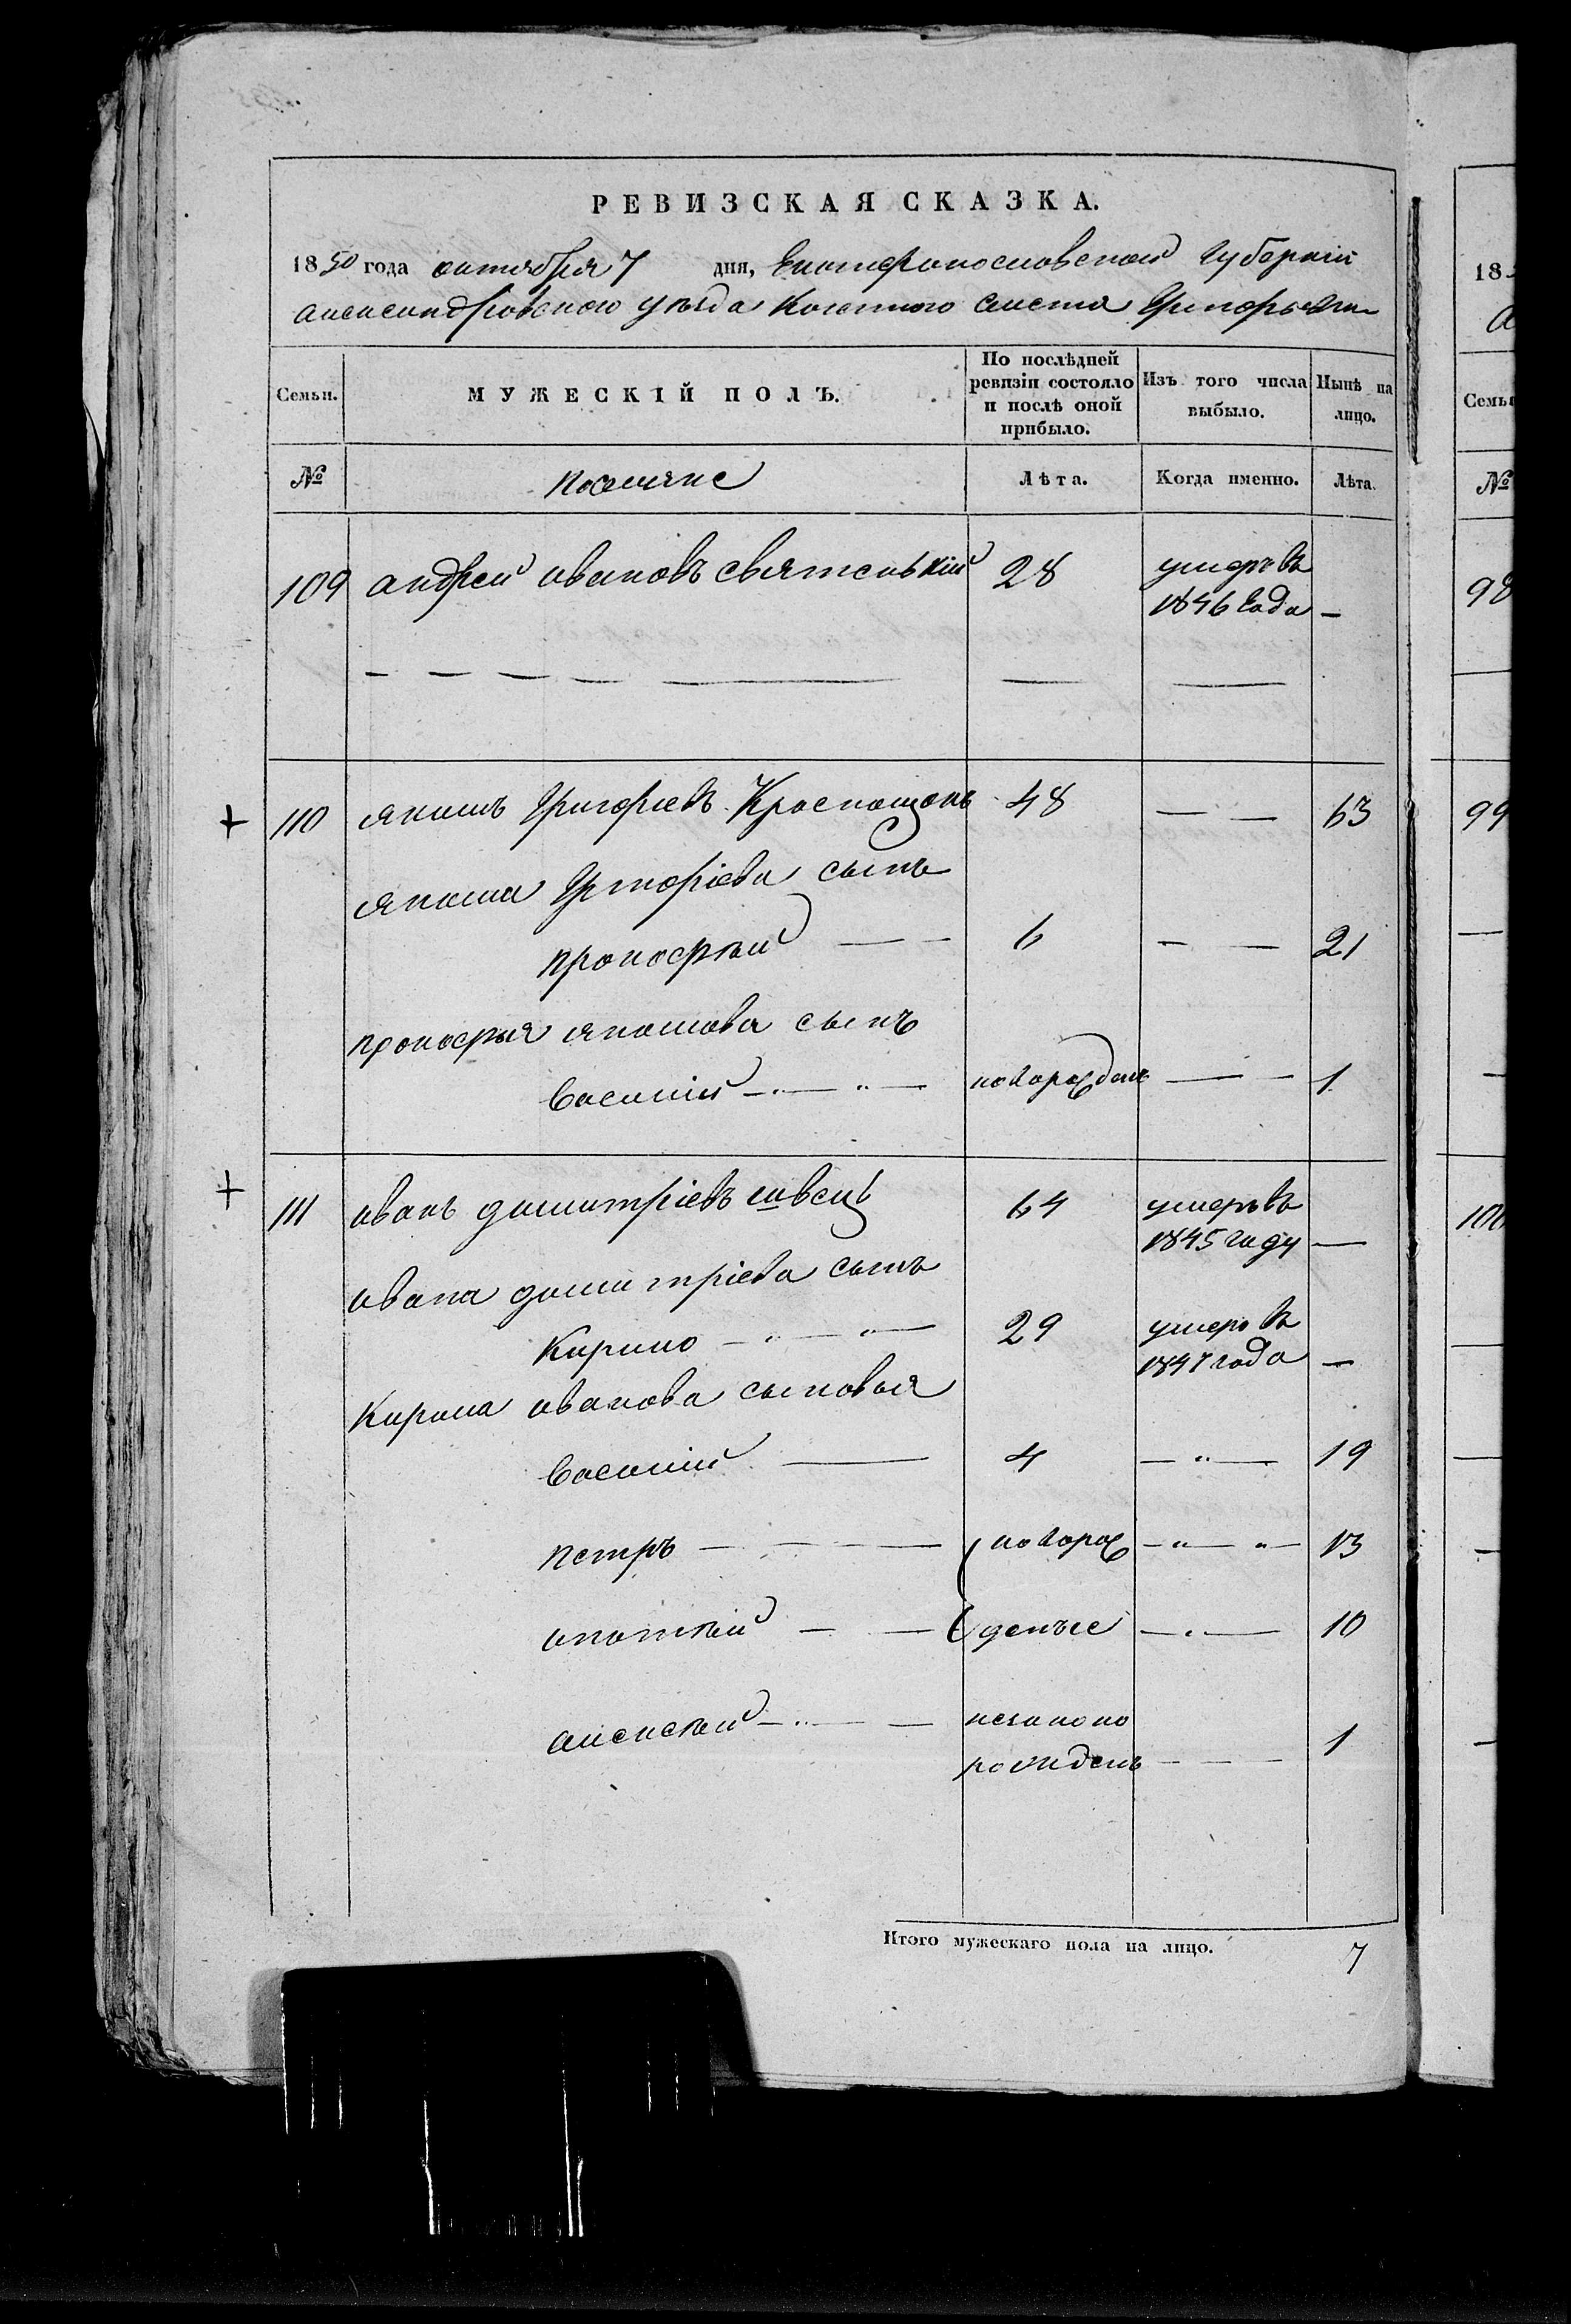 РЕВИЗСКАЯ СКАЗКА.
1850 года октября 7 дня, Екатеринославской Губернiи
александровского уезда казенного селения Григорьевки
Семьи. МУЖЕСКІЙ ПОЛЪ. По послѣдней ревизіи состояло и послѣ оной прибыло. Изъ того числа выбыло. Нынѣ на лицо.
№ поселяне Лѣта. Когда именно. Лѣта.
109 андрей ивановъ святенькій 28 умеръ въ
1846 года —
110 якимъ Григорьевъ Краснощокъ 48 — — 63
якима Григоріева сынъ
прокофій — — 6 — — 21
прокофія якимова сынъ
василій — — новорожденъ — — 1
111 иванъ димитріевъ швецъ 64 умеръ въ
1845 году —
ивана димитріева сынъ
Кирило — — 29 умеръ въ
1847 года —
Кирила иванова сыновья
василій — 4 — 19
петръ — новорож — 13
игнатій — деные — 10
алексей — незаконо
рожденъ — 1
Итого мужескаго пола на лицо. 7
18
Семьи
№
98
99
100